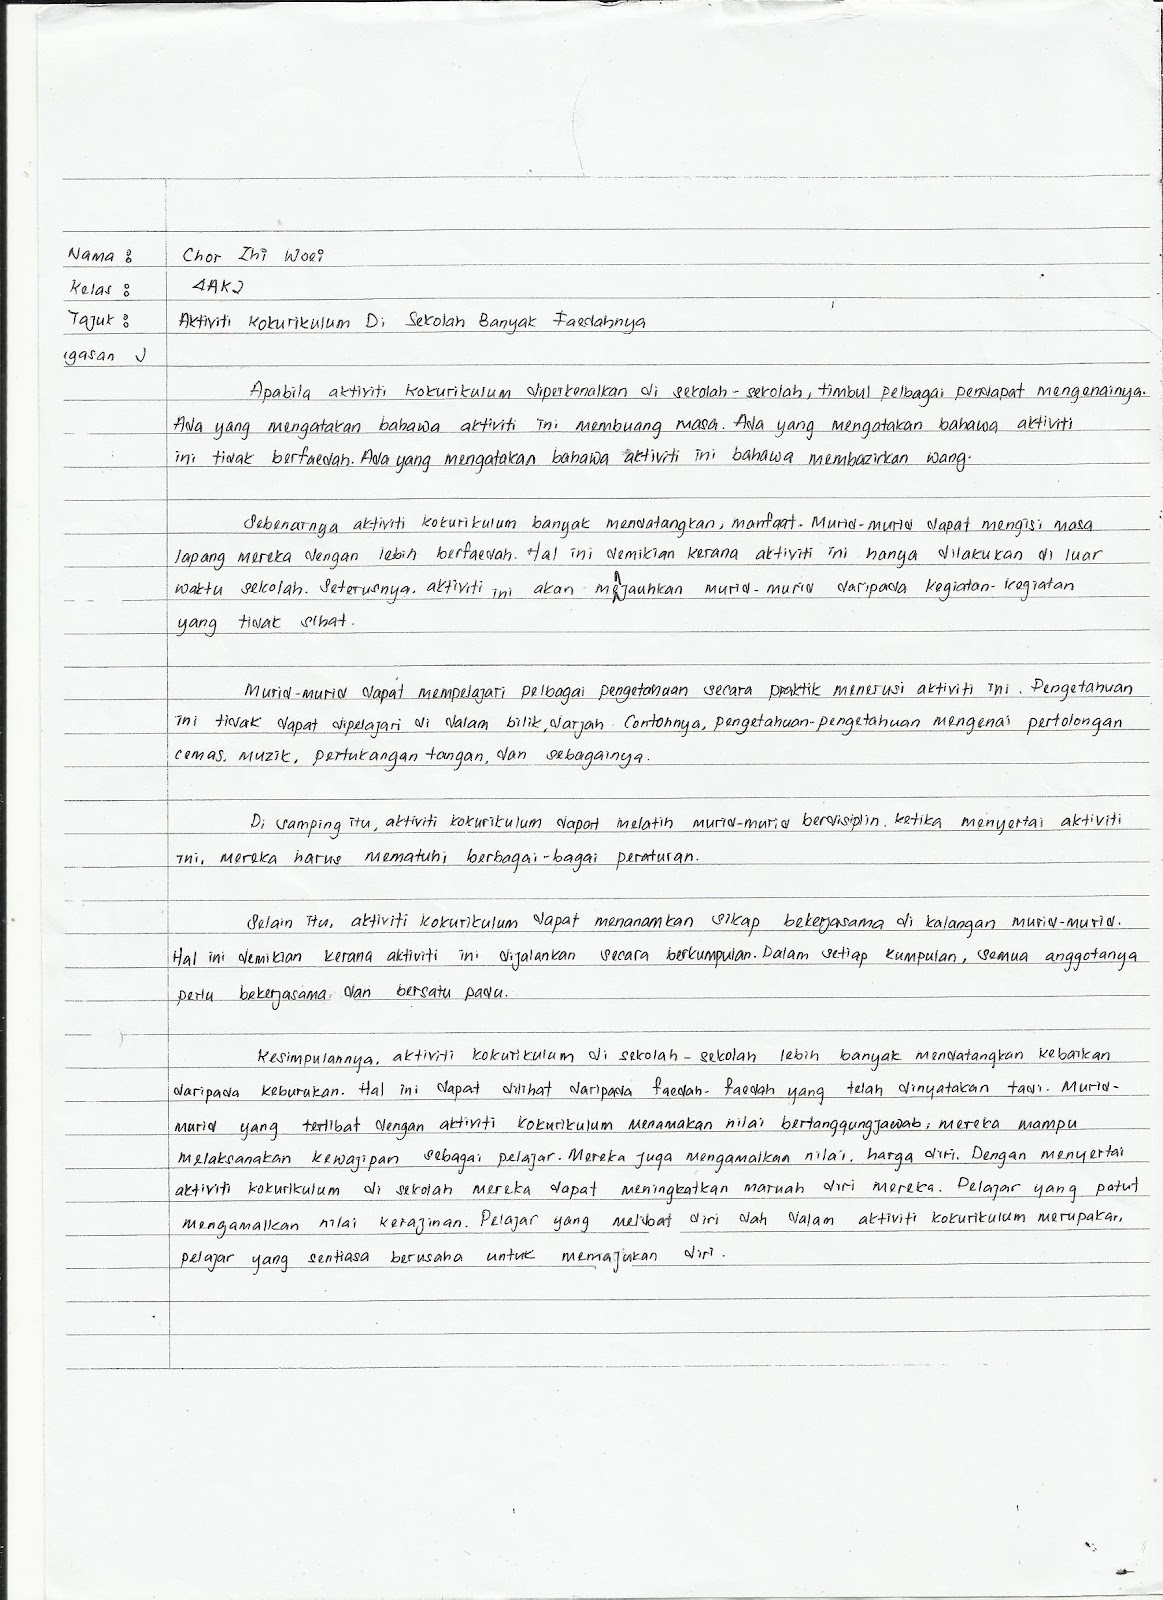 Nama : Chor Zhi Woei
Kelas : 4AK2
Tajuk : Aktiviti Kokurikulum Di Sekolah Banyak Faedahnya
gasan
Apabila aktiviti kokurikulum diperkenalkan di sekolah-sekolah, timbul pelbagai pendapat mengenainya.
Ada yang mengatakan bahawa aktiviti ini membuang masa. Ada yang mengatakan bahawa aktiviti
ini tidak berfaedah. Ada yang mengatakan bahawa aktiviti ini bahawa membazirkan wang.
Sebenarnya aktiviti kokurikulum banyak mendatangkan, manfaat. Murid-murid dapat mengisi masa
lapang mereka dengan lebih berfaedah. Hal ini demikian kerana aktiviti ini hanya dilakukan di luar
waktu sekolah. Seterusnya, aktiviti ini akan menjauhkan murid-murid daripada kegiatan-kegiatan
yang tidak sihat.
Murid-murid dapat mempelajari pelbagai pengetahuan secara praktik menerusi aktiviti ini. Pengetahuan
ini tidak dapat dipelajari di dalam bilik, darjah. Contohnya, pengetahuan-pengetahuan mengenai pertolongan
cemas, muzik, pertukangan tangan, dan sebagainya.
Di samping itu, aktiviti kokurikulum dapat melatih murid-murid berdisiplin. Ketika menyertai aktiviti
ini, mereka harus mematuhi berbagai-bagai peraturan.
Selain itu, aktiviti kokurikulum dapat menanamkan sikap bekerjasama di kalangan murid-murid.
Hal ini demikian kerana aktiviti ini dijalankan secara berkumpulan. Dalam setiap kumpulan, semua anggotanya
perlu bekerjasama dan bersatu padu.
Kesimpulannya, aktiviti kokurikulum di sekolah-sekolah lebih banyak mendatangkan kebaikan
daripada keburukan. Hal ini dapat dilihat daripada faedah-faedah yang telah dinyatakan tadi. Murid-
murid yang terlibat dengan aktiviti kokurikulum menamakan nilai bertanggungjawab, mereka mampu
melaksanakan kewajipan sebagai pelajar. Mereka juga mengamalkan nilai, harga diri. Dengan menyertai
aktiviti kokurikulum di sekolah mereka dapat meningkatkan maruah diri mereka. Pelajar yang patut
mengamalkan nilai kerajinan. Pelajar yang melibat diri dah dalam aktiviti kokurikulum merupakan,
pelajar yang sentiasa berusaha untuk memajukan diri.